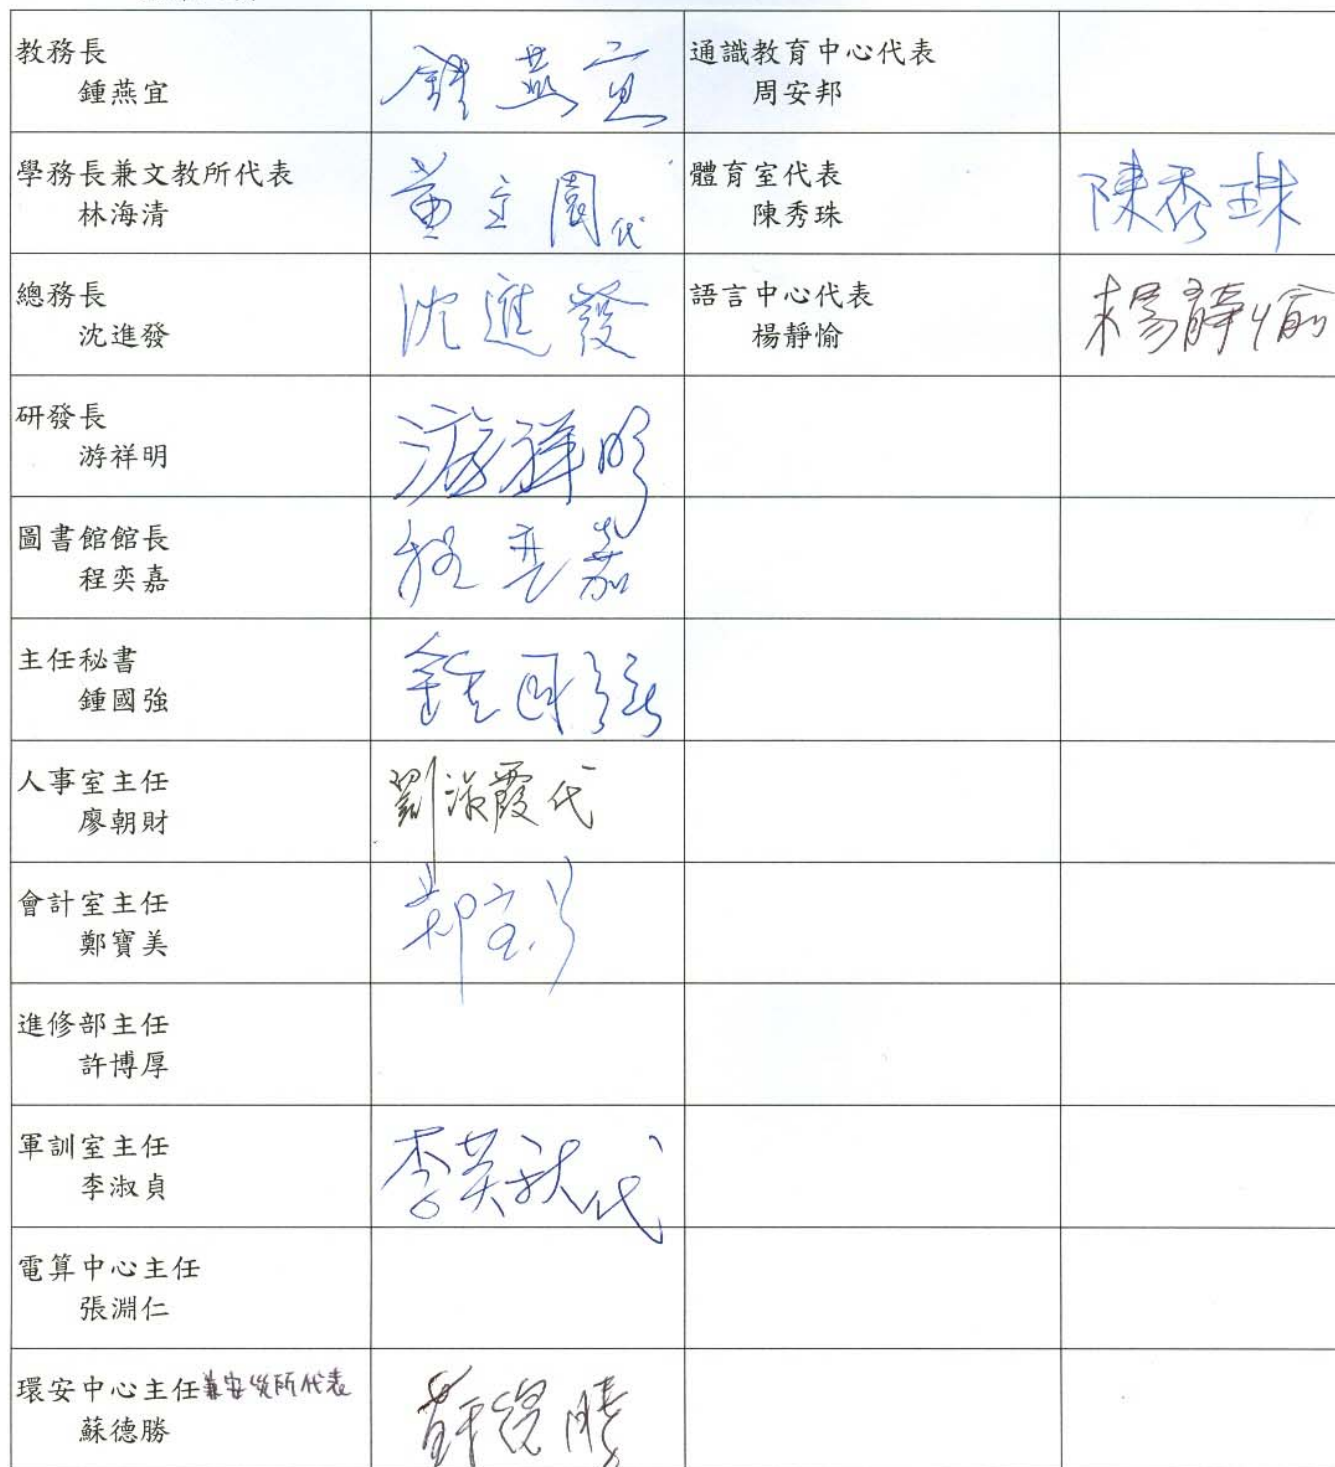 教務長
鍾燕宜
鍾燕宜
通識教育中心代表
周安邦
學務長兼文教所代表
林海清
黃立園代
體育室代表
陳秀珠
陳秀珠
總務長
沈進發
沈進發
語言中心代表
楊靜愉
楊靜愉
研發長
游祥明
游祥明
圖書館館長
程奕嘉
程奕嘉
主任秘書
鍾國強
鍾国強
人事室主任
廖朝財
劉淑霞代
會計室主任
鄭寶美
進修部主任
許博厚
軍訓室主任
李淑貞
李英秋代
電算中心主任
張淵仁
環安中心主任兼安災所代表
蘇德勝
蘇德勝